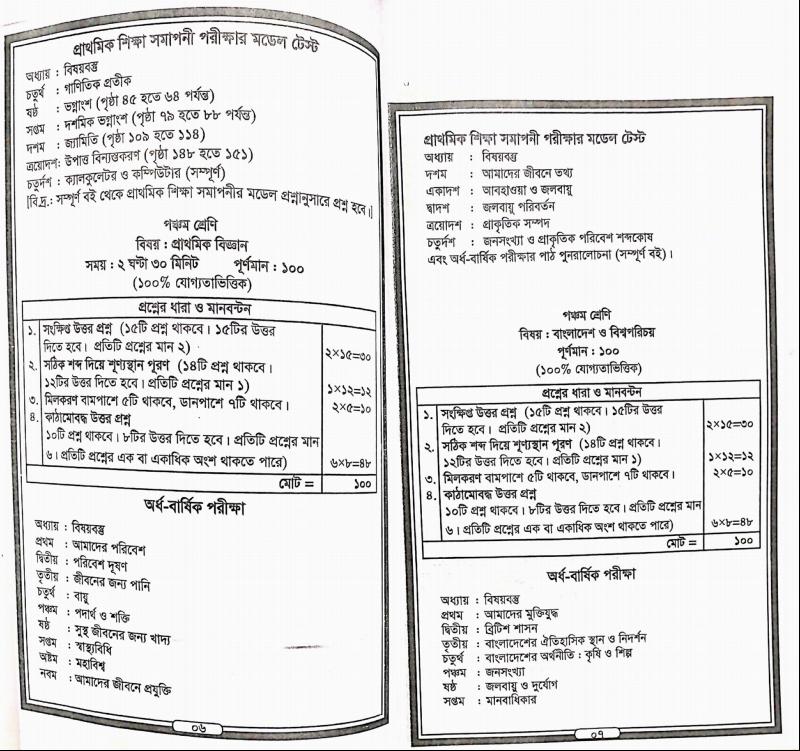 প্রাথমিক শিক্ষা সমাপনী পরীক্ষার মডেল টেস্ট
অধ্যায় : বিষয়বস্তু
চতুর্থ : গাণিতিক প্রতীক
ষষ্ঠ : ভগ্নাংশ (পৃষ্ঠা ৪৫ হতে ৬৪ পর্যন্ত)
সপ্তম : দশমিক ভগ্নাংশ (পৃষ্ঠা ৭৯ হতে ৮৮ পর্যন্ত)
দশম : জ্যামিতি (পৃষ্ঠা ১০৯ হতে ১১৪)
ত্রয়োদশ: উপাত্ত বিন্যস্তকরণ (পৃষ্ঠা ১৪৮ হতে ১৫১)
চতুর্দশ : ক্যালকুলেটর ও কম্পিউটার (সম্পূর্ণ)
[বি.দ্র.: সম্পূর্ণ বই থেকে প্রাথমিক শিক্ষা সমাপনীর মডেল প্রশ্নানুসারে প্রশ্ন হবে।]
পঞ্চম শ্রেণি
বিষয় : প্রাথমিক বিজ্ঞান
সময় : ২ ঘন্টা ৩০ মিনিট পূর্ণমান : ১০০
(১০০% যোগ্যতাভিত্তিক)
প্রশ্নের ধারা ও মানবন্টন
১. সংক্ষিপ্ত উত্তর প্রশ্ন (১৫টি প্রশ্ন থাকবে। ১৫টির উত্তর
দিতে হবে। প্রতিটি প্রশ্নের মান ২) ২×১৫=৩০
২. সঠিক শব্দ দিয়ে শূণ্যস্থান পূরণ (১৪টি প্রশ্ন থাকবে।
১২টির উত্তর দিতে হবে। প্রতিটি প্রশ্নের মান ১) ১×১২=১২
৩. মিলকরণ বামপাশে ৫টি থাকবে, ডানপাশে ৭টি থাকবে। ২×৫=১০
৪. কাঠামোবদ্ধ উত্তর প্রশ্ন
১০টি প্রশ্ন থাকবে। ৮টির উত্তর দিতে হবে। প্রতিটি প্রশ্নের মান
৬। প্রতিটি প্রশ্নের এক বা একাধিক অংশ থাকতে পারে) ৬×৮=৪৮
মোট = ১০০
অর্ধ-বার্ষিক পরীক্ষা
অধ্যায় : বিষয়বস্তু
প্রথম : আমাদের পরিবেশ
দ্বিতীয় : পরিবেশ দূষণ
তৃতীয় : জীবনের জন্য পানি
চতুর্থ : বায়ু
পঞ্চম : পদার্থ ও শক্তি
ষষ্ঠ : সুস্থ জীবনের জন্য খাদ্য
সপ্তম : স্বাস্থ্যবিধি
অষ্টম : মহাবিশ্ব
নবম : আমাদের জীবনে প্রযুক্তি
০৬
প্রাথমিক শিক্ষা সমাপনী পরীক্ষার মডেল টেস্ট
অধ্যায় : বিষয়বস্তু
দশম : আমাদের জীবনে তথ্য
একাদশ : আবহাওয়া ও জলবায়ু
দ্বাদশ : জলবায়ু পরিবর্তন
ত্রয়োদশ : প্রাকৃতিক সম্পদ
চতুর্দশ : জনসংখ্যা ও প্রাকৃতিক পরিবেশ শব্দকোষ
এবং অর্ধ-বার্ষিক পরীক্ষার পাঠ পুনরালোচনা (সম্পূর্ণ বই)।
পঞ্চম শ্রেণি
বিষয় : বাংলাদেশ ও বিশ্বপরিচয়
পূর্ণমান : ১০০
(১০০% যোগ্যতাভিত্তিক)
প্রশ্নের ধারা ও মানবন্টন
১. সংক্ষিপ্ত উত্তর প্রশ্ন (১৫টি প্রশ্ন থাকবে। ১৫টির উত্তর
দিতে হবে। প্রতিটি প্রশ্নের মান ২) ২×১৫=৩০
২. সঠিক শব্দ দিয়ে শূণ্যস্থান পূরণ (১৪টি প্রশ্ন থাকবে।
১২টির উত্তর দিতে হবে। প্রতিটি প্রশ্নের মান ১) ১×১২=১২
৩. মিলকরণ বামপাশে ৫টি থাকবে, ডানপাশে ৭টি থাকবে। ২×৫=১০
৪. কাঠামোবদ্ধ উত্তর প্রশ্ন
১০টি প্রশ্ন থাকবে। ৮টির উত্তর দিতে হবে। প্রতিটি প্রশ্নের মান
৬। প্রতিটি প্রশ্নের এক বা একাধিক অংশ থাকতে পারে) ৬×৮=৪৮
মোট = ১০০
অর্ধ-বার্ষিক পরীক্ষা
অধ্যায় : বিষয়বস্তু
প্রথম : আমাদের মুক্তিযুদ্ধ
দ্বিতীয় : ব্রিটিশ শাসন
তৃতীয় : বাংলাদেশের ঐতিহাসিক স্থান ও নিদর্শন
চতুর্থ : বাংলাদেশের অর্থনীতি : কৃষি ও শিল্প
পঞ্চম : জনসংখ্যা
ষষ্ঠ : জলবায়ু ও দুর্যোগ
সপ্তম : মানবাধিকার
০৭